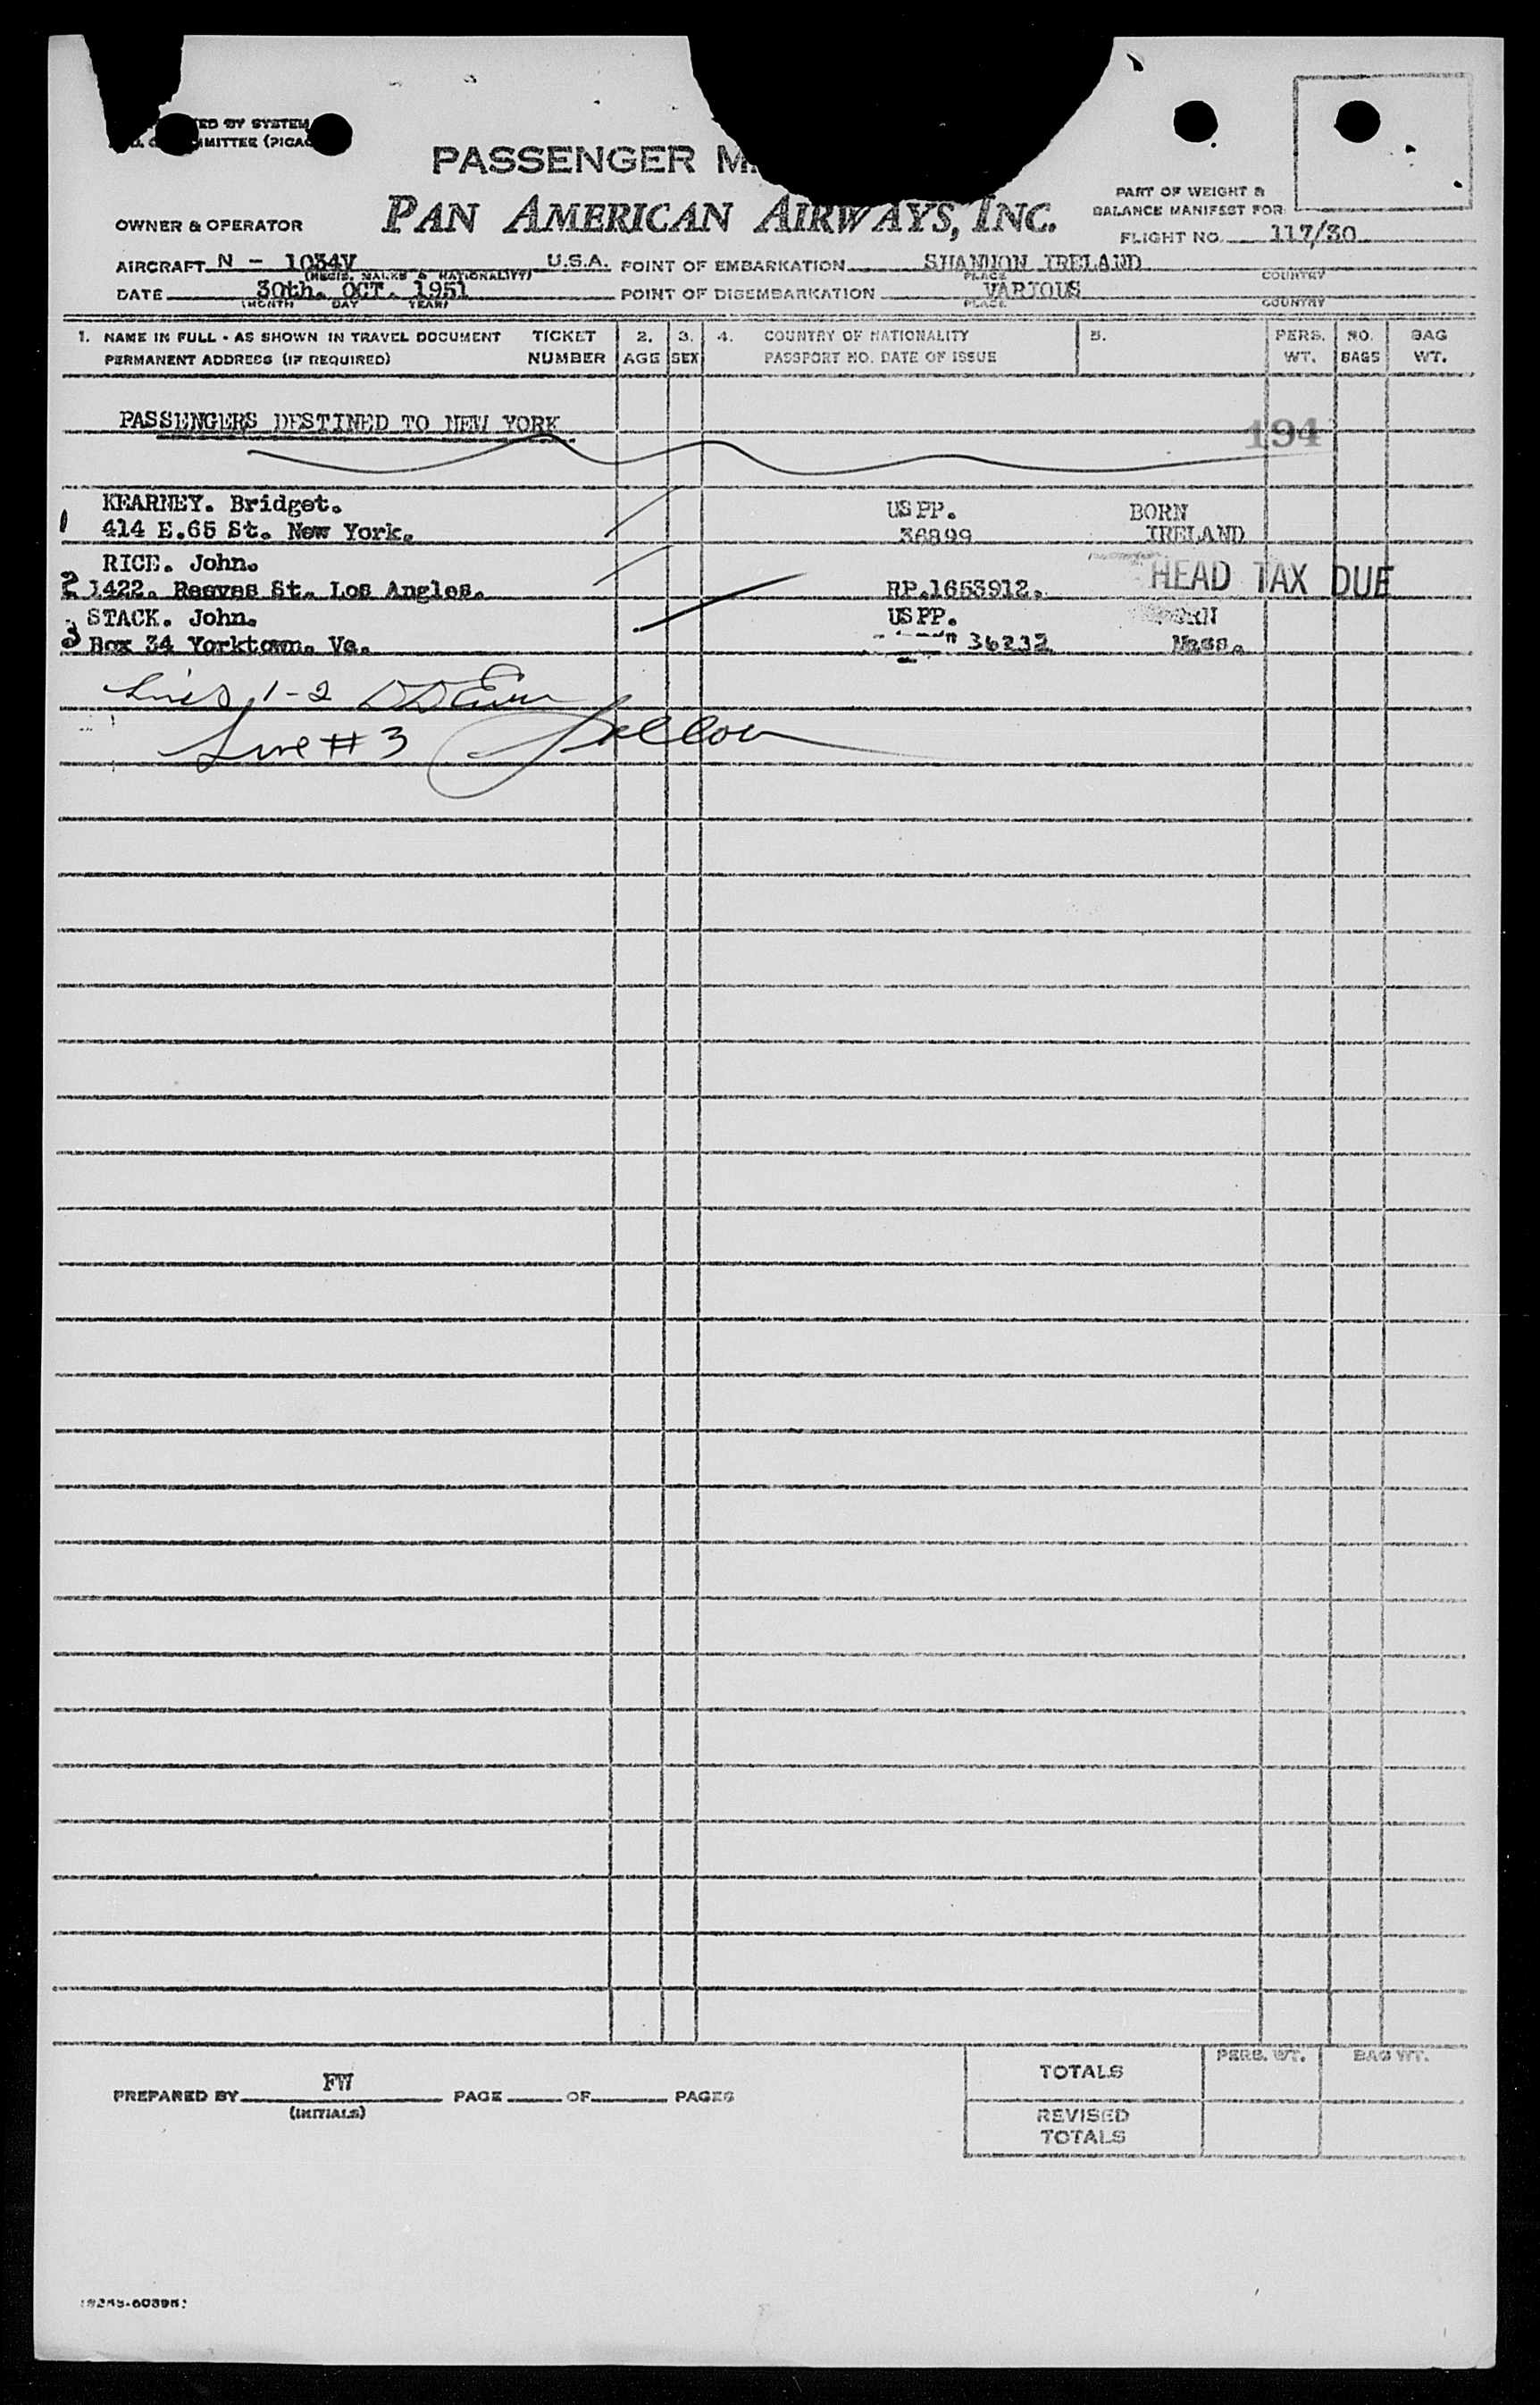 ED BY SYSTEM
MMITTEE (PICAO
PASSENGER M
PAN AMERICAN AIRWAYS, INC.
PART OF WEIGHT &
BALANCE MANIFEST FOR
OWNER & OPERATOR
FLIGHT NO. 117/30
AIRCRAFT N - 1034V U.S.A. POINT OF EMBARKATION SHANNON IRELAND
(REGIS. MARKS & NATIONALITY) PLACE COUNTRY
DATE 30th. OCT. 1951 POINT OF DISEMBARKATION VARIOUS
(MONTH DAY YEAR) PLACE COUNTRY
1. NAME IN FULL - AS SHOWN IN TRAVEL DOCUMENT TICKET 2. 3. 4. COUNTRY OF NATIONALITY 5. PERS. NO. BAG
PERMANENT ADDRESS (IF REQUIRED) NUMBER AGE SEX PASSPORT NO. DATE OF ISSUE WT. BAGS WT.
PASSENGERS DESTINED TO NEW YORK
194
KEARNEY. Bridget. USPP. BORN
1 414 E.65 St. New York. 36899 IRELAND
RICE. John. HEAD TAX DUE
2 1422. Reeves St. Los Angles. RP.1653912.
STACK. John. USPP.
3 Box 34 Yorktown. Va. 36232 Mass.
Lines 1-2
Line # 3
PREPARED BY FW PAGE OF PAGES
(INITIALS)
TOTALS PERS. WT. BAG WT.
REVISED
TOTALS